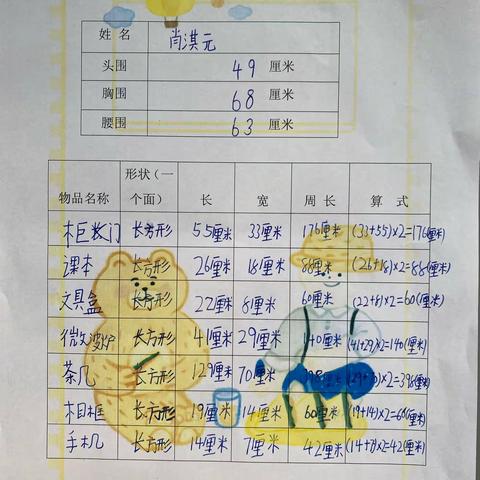 姓名 肖淇元
头围 49 厘米
胸围 68 厘米
腰围 63 厘米
物品名称 形状（一个面） 长 宽 周长 算式
柜长门 长方形 55厘米 33厘米 176厘米 (33+55)×2=176(厘米)
课本 长方形 26厘米 18厘米 88厘米 (26+18)×2=88(厘米)
文具盒 长方形 22厘米 8厘米 60厘米 (22+8)×2=60(厘米)
微波炉 长方形 41厘米 29厘米 140厘米 (41+29)×2=140(厘米)
茶几 长方形 129厘米 70厘米 398厘米 (129+70)×2=398(厘米)
相框 长方形 19厘米 14厘米 60厘米 (19+14)×2=66(厘米)
手机 长方形 14厘米 7厘米 42厘米 (14+7)×2=42(厘米)